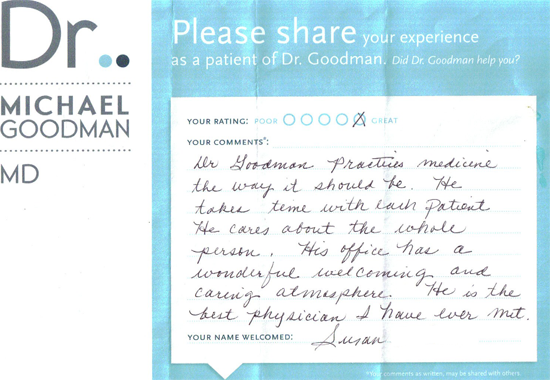 Dr..
MICHAEL
GOODMAN
MD
Please share your experience
as a patient of Dr. Goodman. Did Dr. Goodman help you?
YOUR RATING: POOR GREAT
YOUR COMMENTS*:
Dr Goodman Practices medicine
the way it should be. He
takes time with each patient
He cares about the whole
person. His office has a
wonderful welcoming and
caring atmosphere. He is the
best physician I have ever met.
YOUR NAME WELCOMED: Susan
*Your comments as written, may be shared with others.